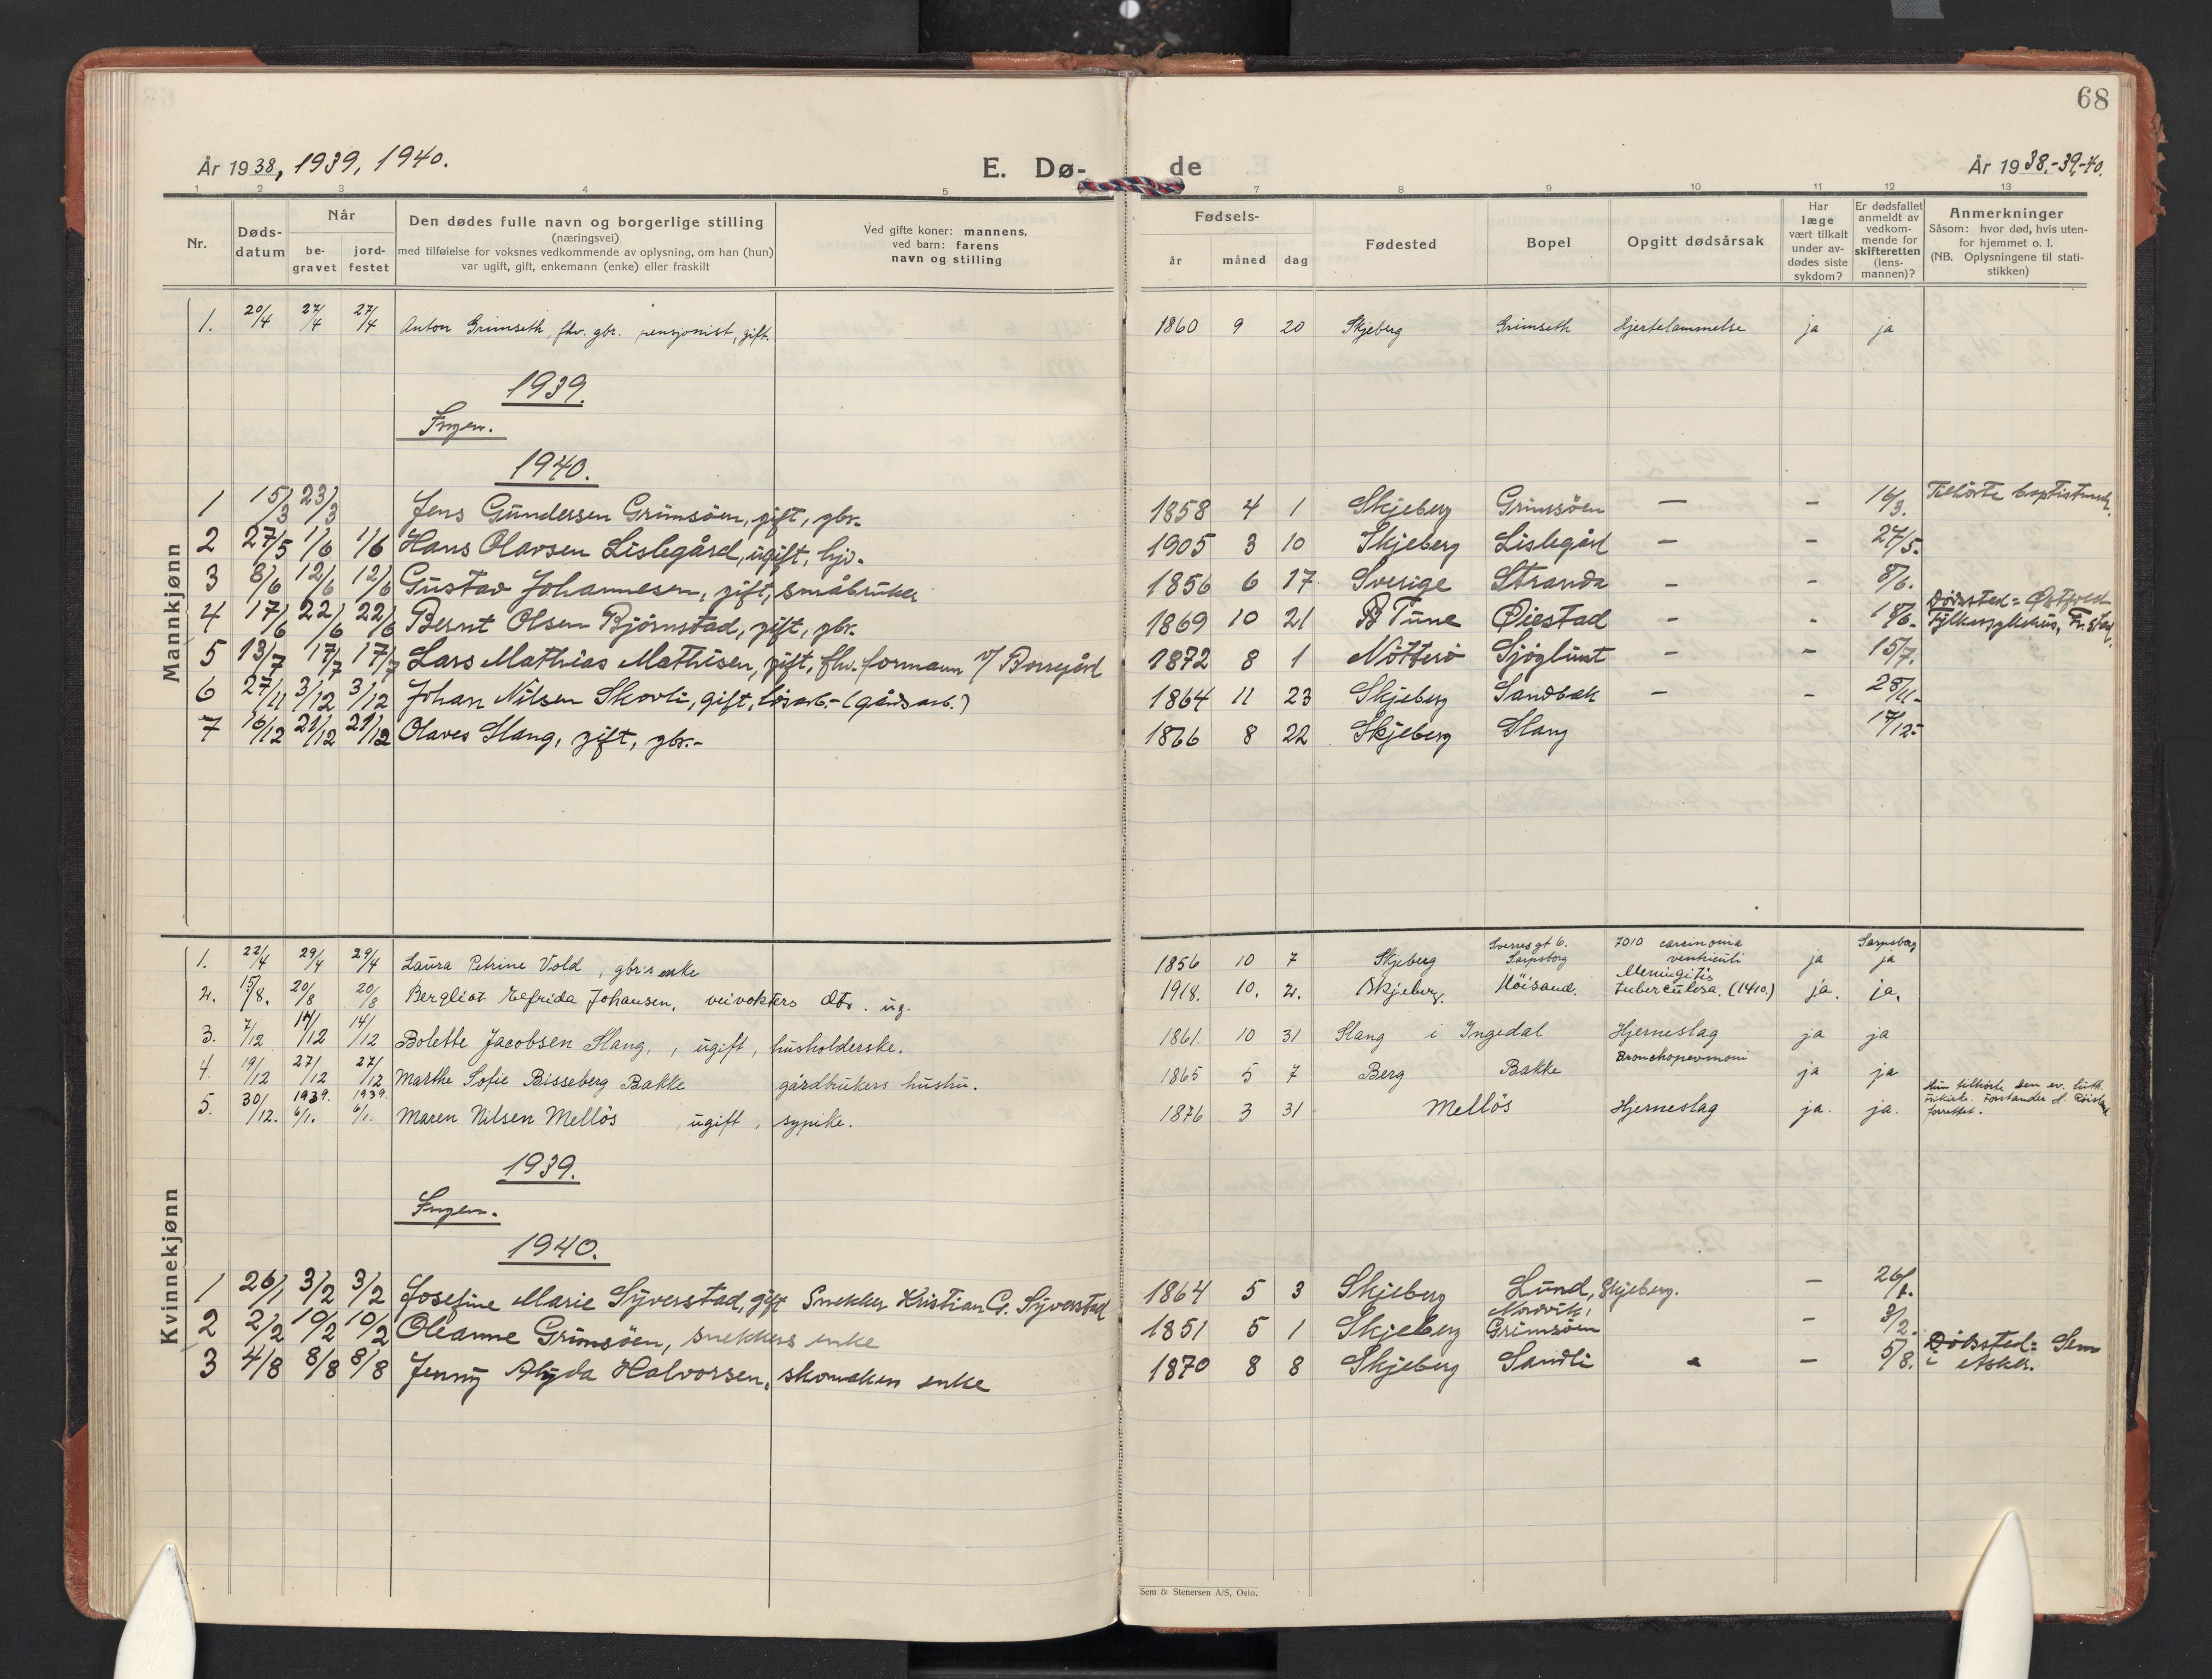 68
År 1938, 1939, 1940. E. Dø- de År 1938.-39.-40.
1 2 3 4 5 7 8 9 10 11 12 13
Nr. Døds-datum Når be-gravet jord-festet Den dødes fulle navn og borgerlige stilling (næringsvei) med tilføielse for voksnes vedkommende av oplysning, om han (hun) var ugift, gift, enkemann (enke) eller fraskilt Ved gifte koner: mannens, ved barn: farens navn og stilling Fødsels- år måned dag Fødested Bopel Opgitt dødsårsak Har læge vært tilkalt under av-dødes siste sykdom? Er dødsfallet anmeldt av vedkom-mende for skifteretten (lens-mannen)? Anmerkninger Såsom: hvor død, hvis uten-for hjemmet o. l. (NB. Oplysningene til stati-stikken)
Mannkjønn
1. 20/4 27/4 27/4 Anton Grimseth, fhv. gbr. pensjonist, gift. 1860 9 20 Skjeberg Grimseth Hjertelammelse ja ja
1939.
Ingen.
1940.
1 15/3 23/3 Jens Gundersen Grimsöen, gift, gbr. 1858 4 1 Skjeberg Grimsöen — – 16/3. Tilhörte baptistmen.
2 27/5 1/6 1/6 Hans Olavsen Lislegård, ugift, hjv. 1905 3 10 Skjeberg Lislegård – – 27/5.
3 8/6 12/6 12/6 Gustav Johannesen, gift, småbruker 1856 6 17. Sverige Stranda – – 8/6.
4 17/6 22/6 22/6 Bernt Olsen Björnstad, gift, gbr. 1869 10 21 Tune Øiestad – – 18/6. Dödssted = Østfold Fylkessykehus, Fr.stad.
5 13/7 17/7 17/7 Lars Mathias Mathisen, gift, fhv. formann v/ Borregård 1872 8 1 Nötterö Sjöglimt – – 15/7.
6 27/11 3/12 3/12 Johan Nilsen Skovli, gift, lösarb.- (gårdsarb.) 1864 11 23 Skjeberg Sandbak – – 28/11-
7 16/12 21/12 21/12 Olaves Slang, gift, gbr.- 1866 8 22 Skjeberg Slang 17/12-
Kvinnekjønn
1. 22/4 29/4 29/4 Laura Petrine Vold, gbr's enke 1856 10 7 Skjeberg Sverresgt 6. Sarpsborg 7010 carcinoma ventriculi ja Sarpsborg ja
2. 15/8. 20/8 20/8 Bergliot Elfrida Johansen, veivokters dtr. ug. 1918. 10. 2. Skjeberg. Höisand. Meningitis tuberculosa. (1410.) ja. ja.
3. 7/12 14/12 14/12 Bolette Jacobsen Slang, ugift, husholderske. 1861. 10 31 Slang i Ingedal Hjerneslag ja ja
4. 19/12 27/12 27/12 Marthe Sofie Bisseberg Bakke gårdbrukers hustru. 1865 5 7 Berg Bakke Bronchopnevmoni ja ja
5. 30/12. 1939. 6/1. 1939. 6/1. Maren Nilsen Mellös, ugift, sypike. 1876 3 31 Mellös Hjerneslag ja. ja. Hun tilhörte den ev. luth. frikirke. Forstander H. forrettet.
1939.
Ingen.
1940.
1 26/1 3/2 3/2 Josefine Marie Syverstad, gift Snekker Kristian G. Syverstad 1864 5 3 Skjeberg Lund, Skjeberg. – 26/1.
2 2/2 10/2 10/2 Oleanne Grimsöen, snekkers enke 1851 5 1 Skjeberg Nordvik, Grimsöen – 3/2.
3 4/8 8/8 8/8 Jenny Alyda Halvorsen, skomakers enke 1870 8 8 Skjeberg Sandli – – 5/8. Dödssted = Sem i Asker.
Sem & Stenersen A/S, Oslo.